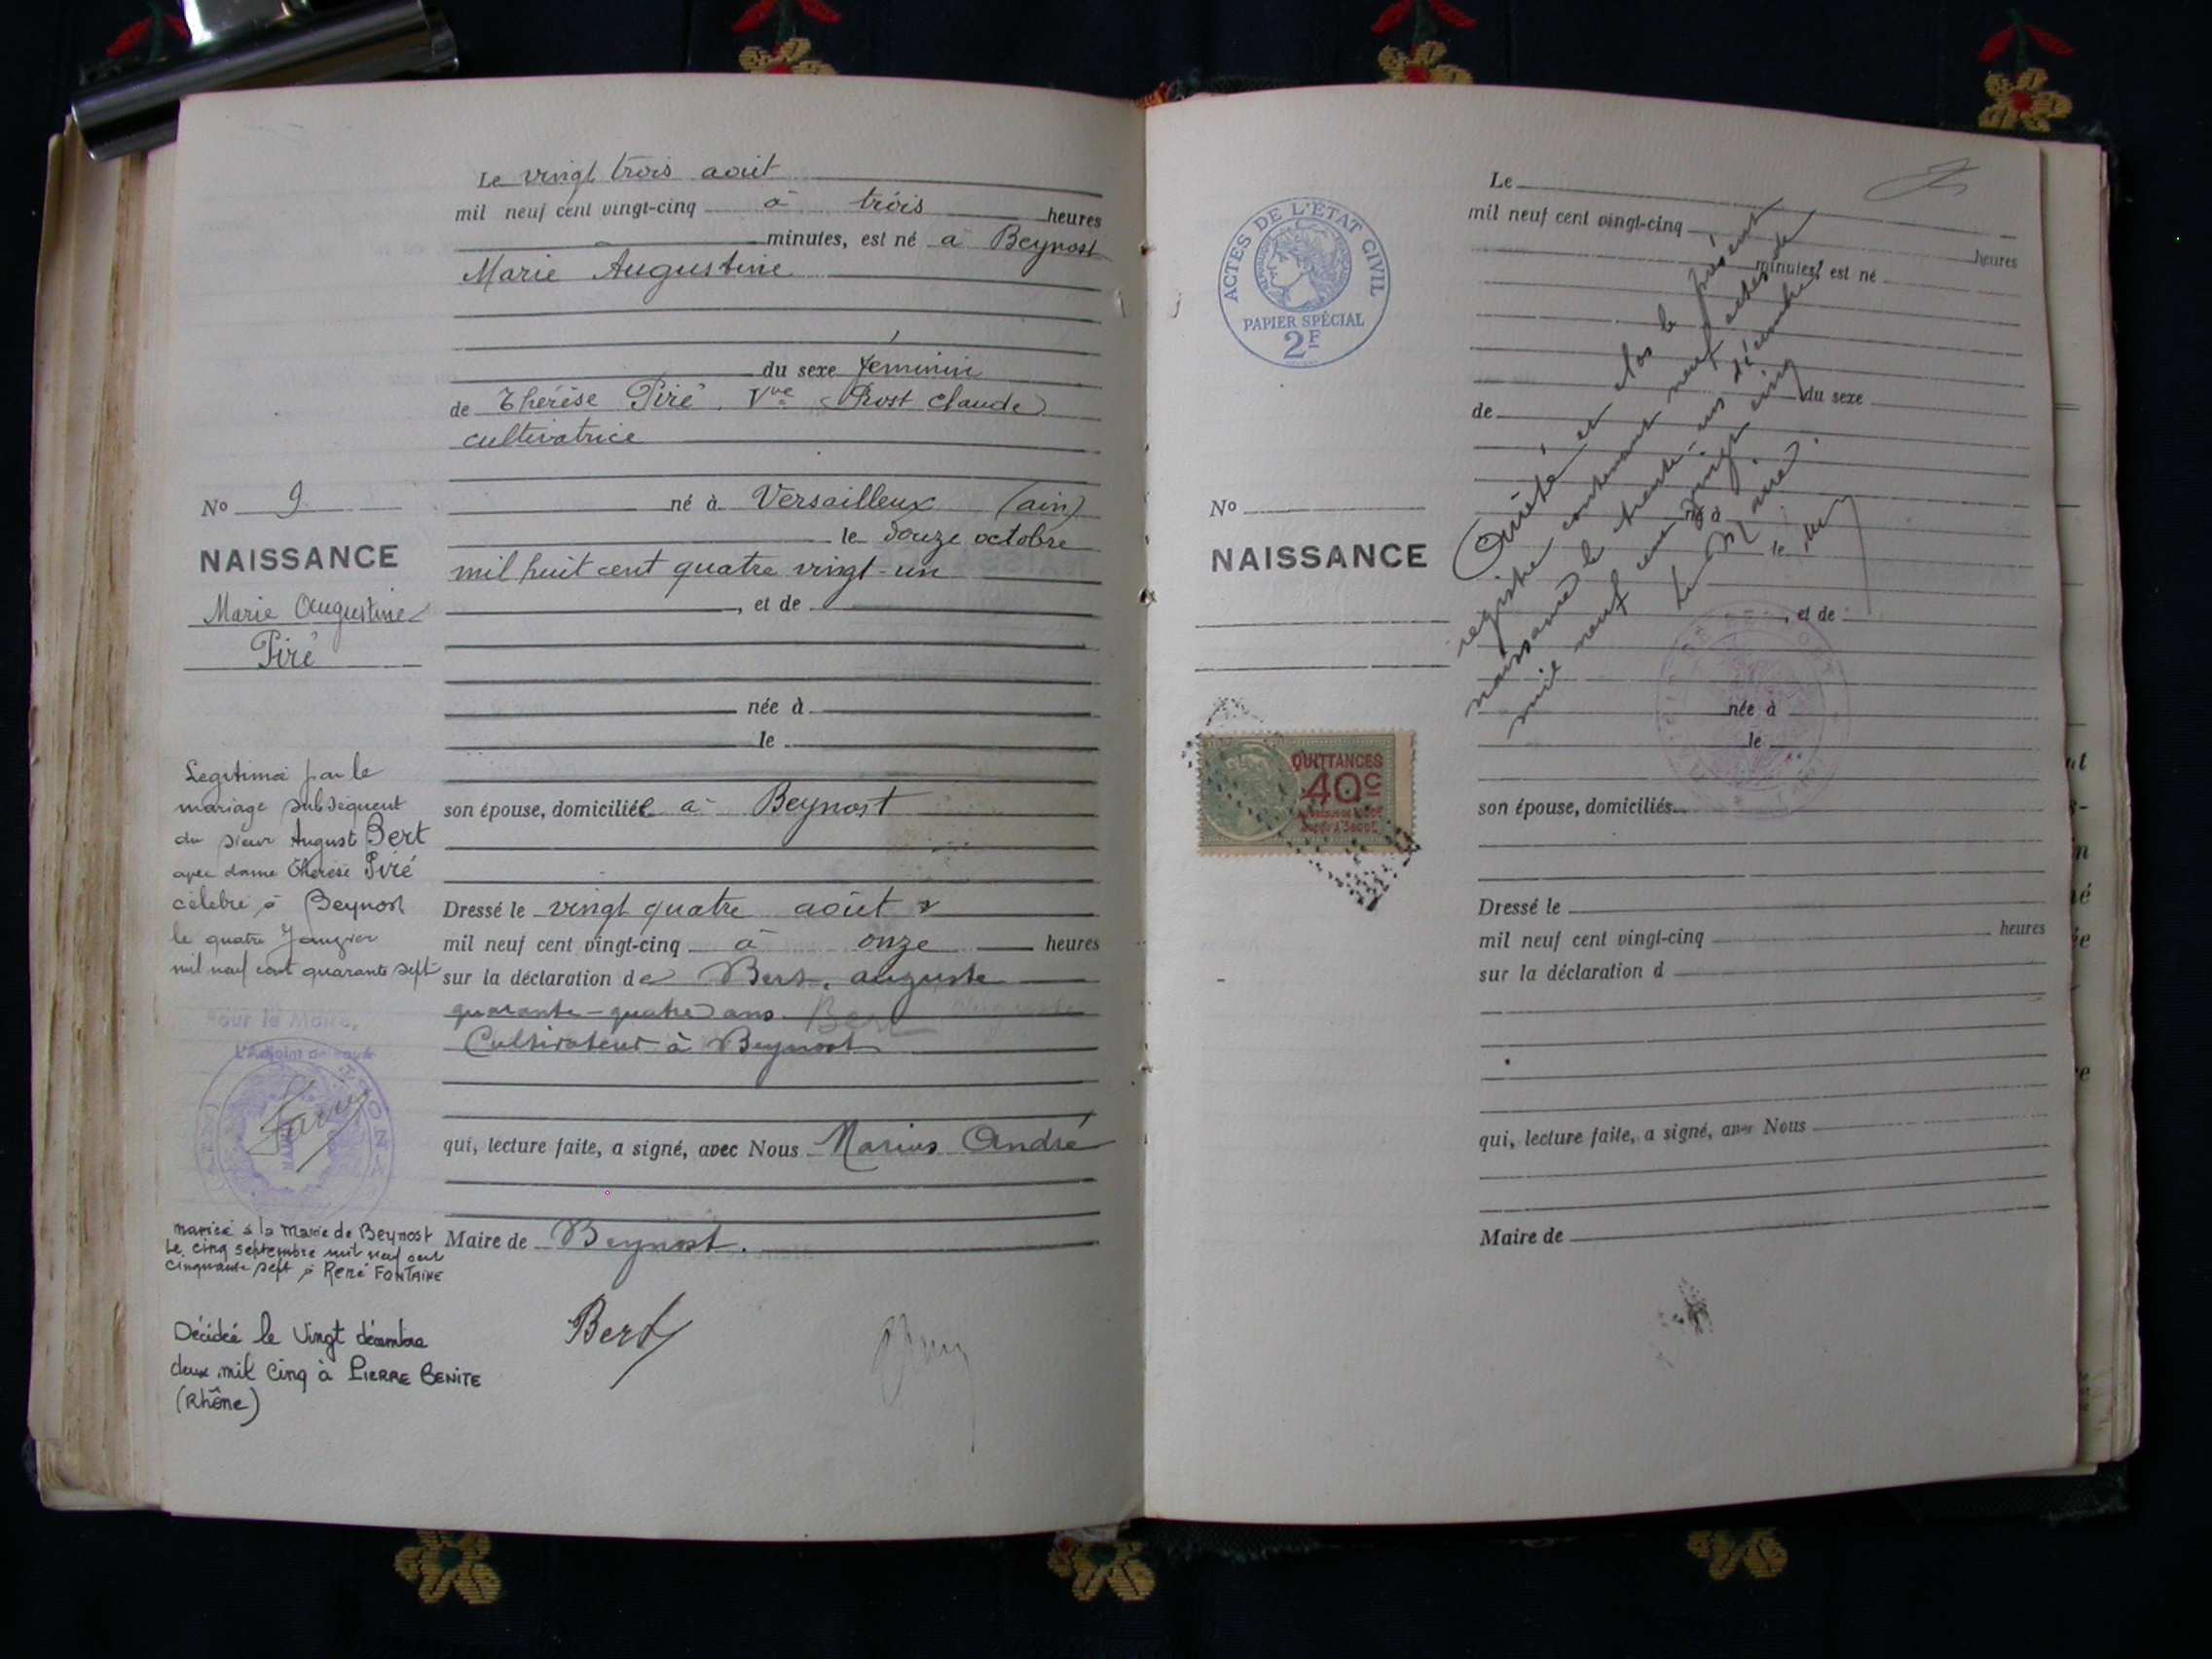 Le vingt trois août
mil neuf cent vingt-cinq à trois heures
minutes, est né à Beynost
Marie Augustine
du sexe féminin
de Thérèse Piré Vve Prost Claude
cultivatrice
né à Versailleux (ain)
le douze octobre
mil huit cent quatre vingt-un
, et de
née à
le
son épouse, domiciliée à Beynost
Dressé le vingt quatre août
mil neuf cent vingt-cinq à onze heures
sur la déclaration de Bert, auguste
quarante-quatre ans Bert
Cultivateur à Beynost
qui, lecture faite, a signé, avec Nous Marius André
Maire de Beynost.
Bert
No 9
NAISSANCE
Marie Augustine
Piré
Legitimé par le
mariage subséquent
du sieur August Bert
avec dame Thérèse Piré
célébré à Beynost
le quatre Janvier
mil neuf cent quarante sept
Pour le Maire,
L'Adjoint
mariée à la Mairie de Beynost
Le cinq septembre mil neuf cent
cinquante sept à René FONTAINE
Décédée le Vingt décembre
deux mil cinq à PIERRE BENITE
(Rhône)
ACTES DE L'ÉTAT CIVIL
PAPIER SPÉCIAL
2F
Le
mil neuf cent vingt-cinq
heures
minutes, est né
du sexe
de
No
NAISSANCE
né à
le
, et de
née à
le
son épouse, domiciliés
Dressé le
mil neuf cent vingt-cinq heures
sur la déclaration d
qui, lecture faite, a signé, avec Nous
Maire de
Arrêté et clos le présent
registre contenant neuf actes de
naissance le trente-un décembre
mil neuf cent vingt cinq
Le Maire.
QUITTANCES
40c